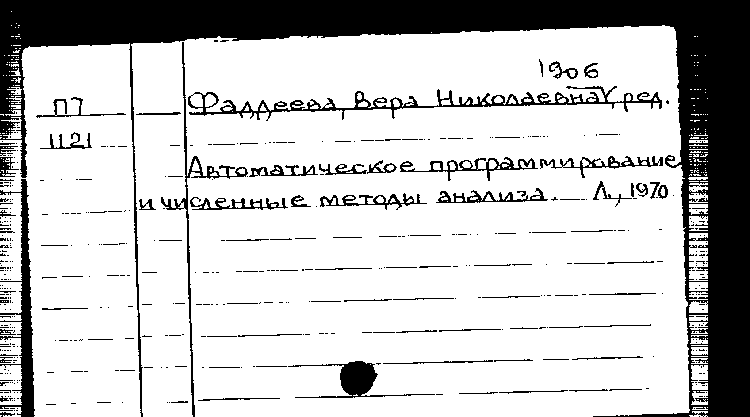 1906
П7 Фаддеева, Вера Николаевна, ред.
1121
Автоматическое программирование
и численные методы анализа. Л., 1970